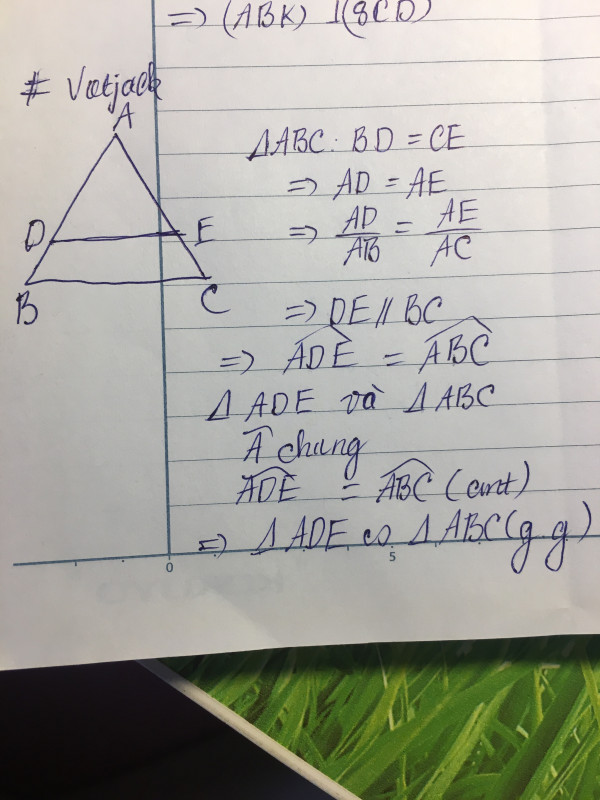 => (ABK) ⊥ (BCD)
# Vietjack
A
D E
B C
ΔABC: BD = CE
=> AD = AE
=> AD/AB = AE/AC
=> DE // BC
=> ADE^ = ABC^
Δ ADE và Δ ABC
A^ chung
ADE^ = ABC^ (cmt)
=> Δ ADE ∽ Δ ABC (g.g)
0 5